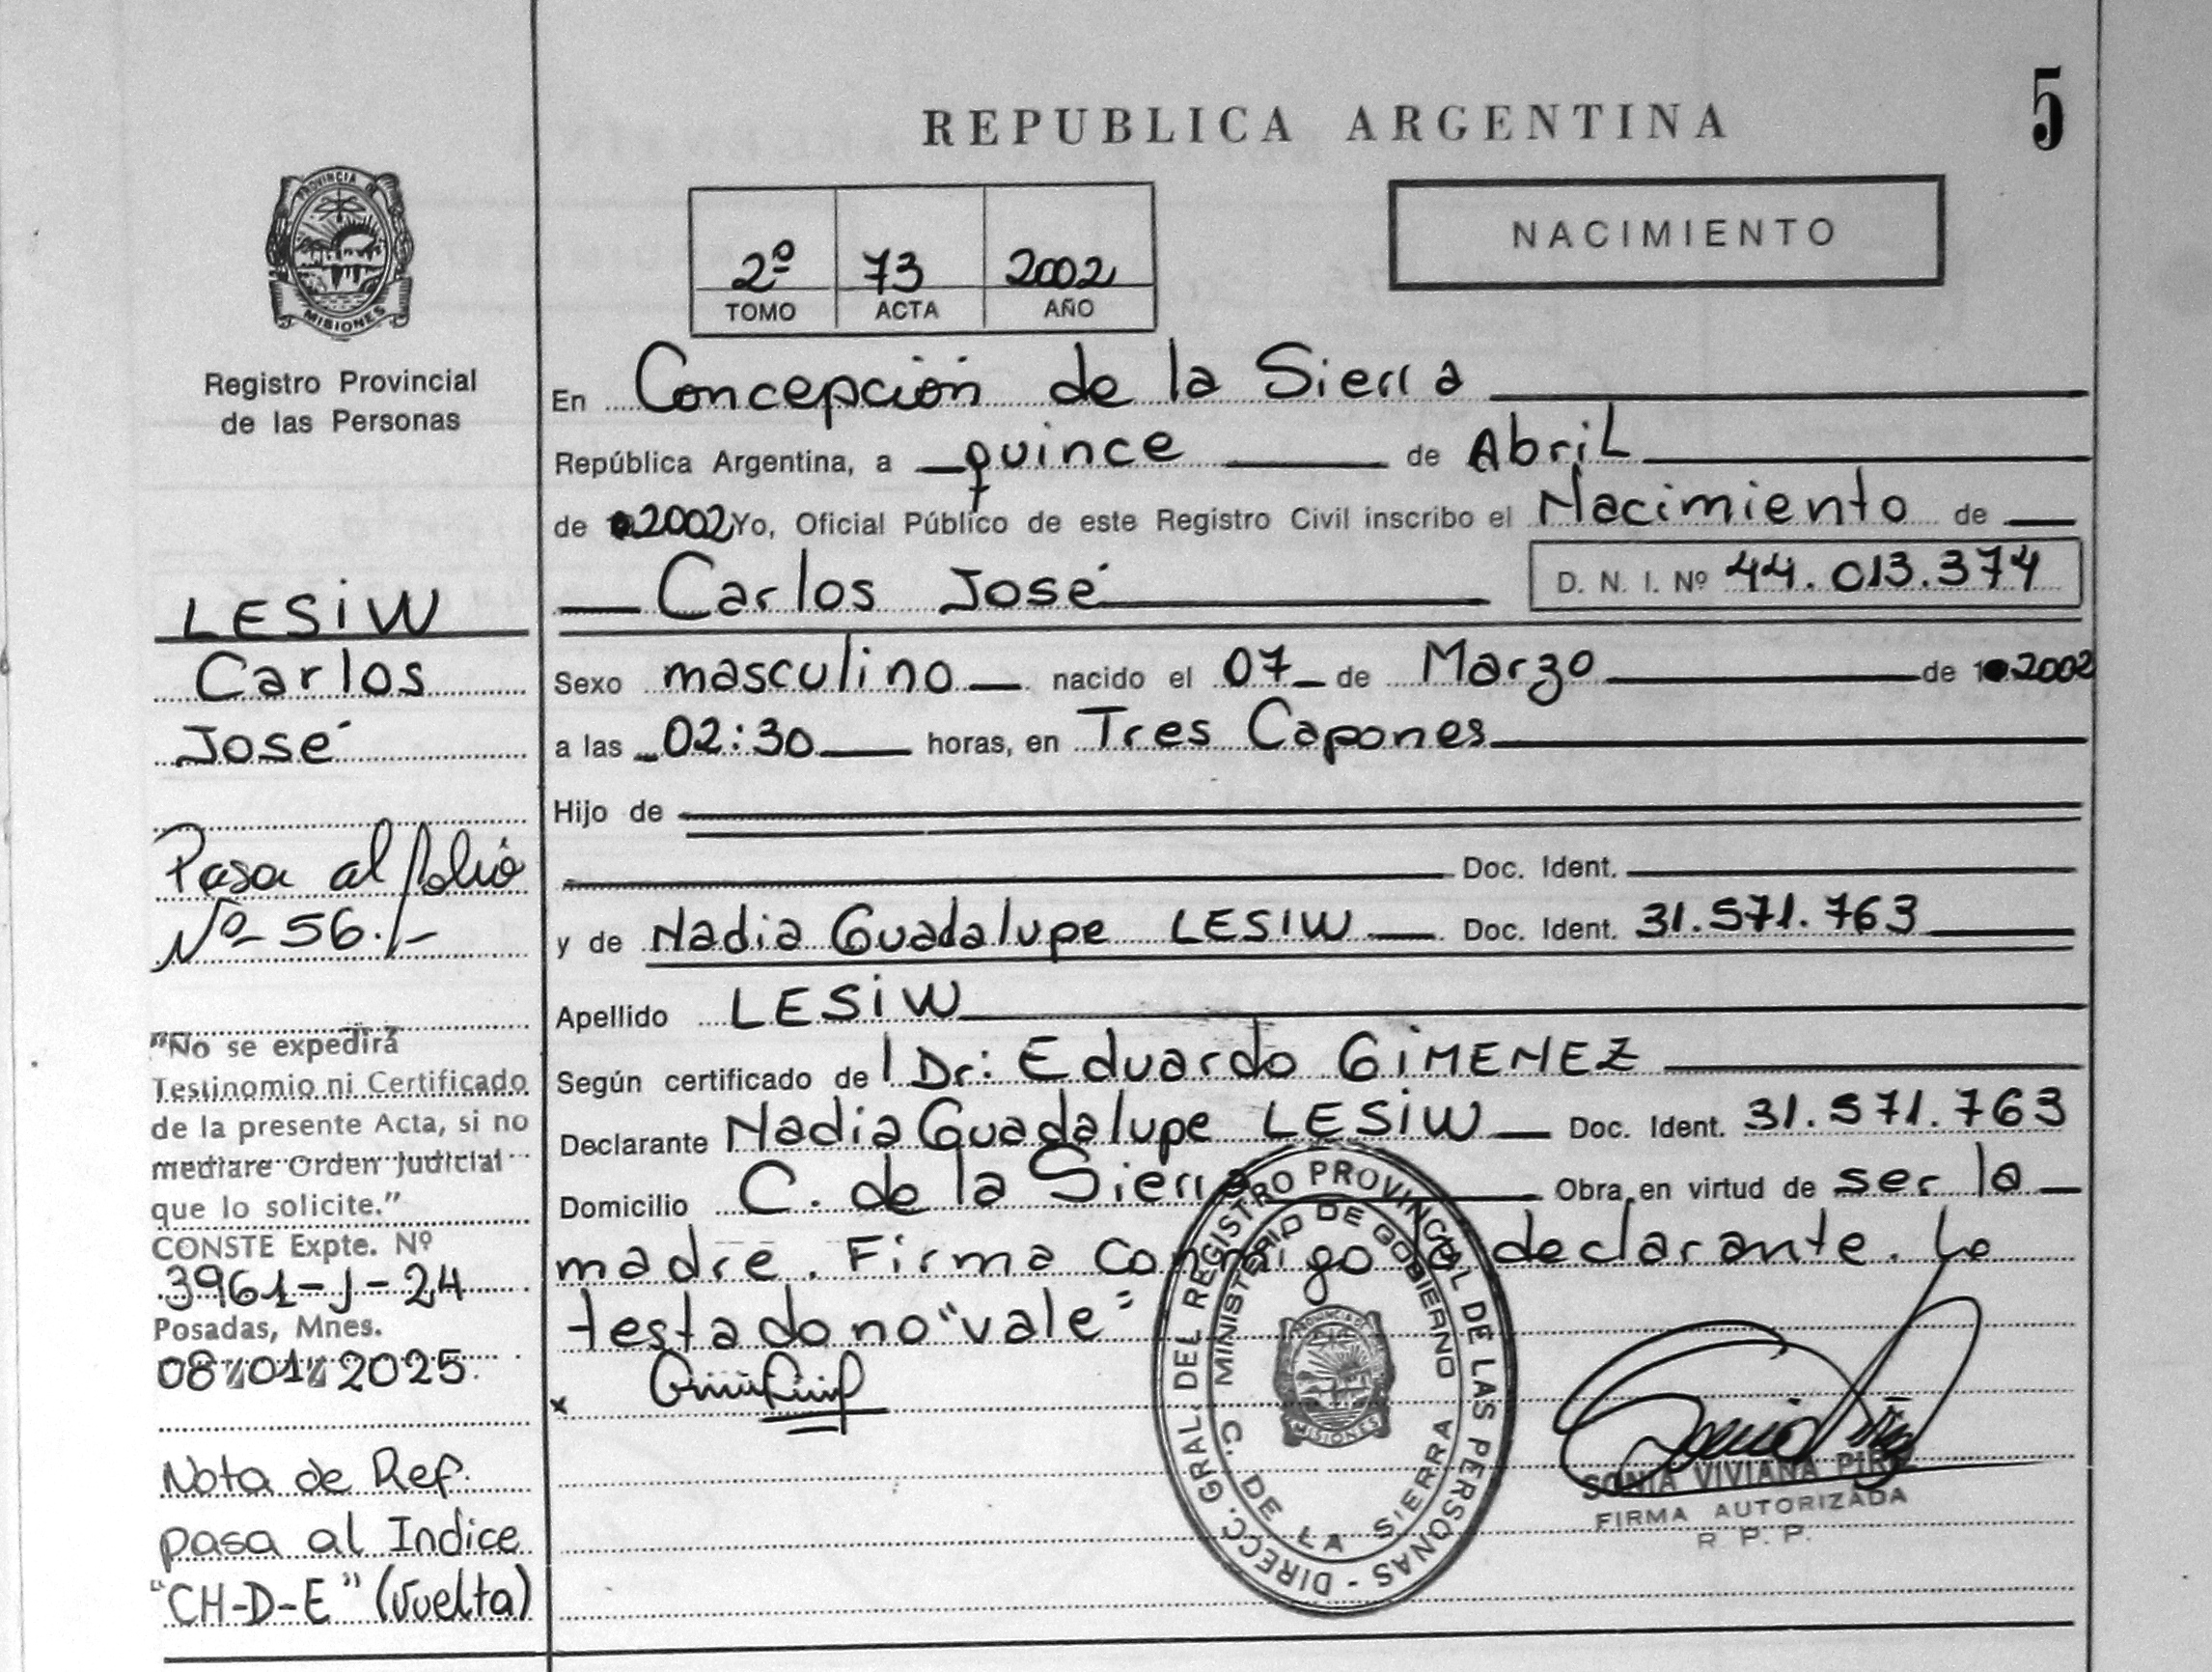 REPUBLICA ARGENTINA
5
NACIMIENTO
2º 73 2002
TOMO ACTA AÑO
PROVINCIA DE
MISIONES
Registro Provincial
de las Personas
LESIW
Carlos
José
Pasa al folio
Nº 56./-
"No se expedirá
Testinomio ni Certificado
de la presente Acta, si no
mediare Orden Judicial
que lo solicite."
CONSTE Expte. Nº
3961-J-24
Posadas, Mnes.
08/01/2025.
Nota de Ref.
pasa al Indice
"CH-D-E" (Vuelta)
En Concepción de la Sierra
República Argentina, a quince de Abril
de 2002 Yo, Oficial Público de este Registro Civil inscribo el Nacimiento de
Carlos José D. N. I. Nº 44.013.374
Sexo masculino nacido el 07 de Marzo de 1 2002
a las 02:30 horas, en Tres Capones
Hijo de
Doc. Ident.
y de Nadia Guadalupe LESIW Doc. Ident. 31.571.763
Apellido LESIW
Según certificado del Dr: Eduardo GIMENEZ
Declarante Nadia Guadalupe LESIW Doc. Ident. 31.571.763
Domicilio C. de la Sierra Obra en virtud de ser la
madre. Firma conmigo el declarante. Lo
testado no "vale"
x
DIRECC. GRAL. DEL REGISTRO PROVINCIAL DE LAS PERSONAS -
MINISTERIO DE GOBIERNO
C. DE LA SIERRA
MISIONES
SONIA VIVIANA
FIRMA AUTORIZADA
R. P. P.